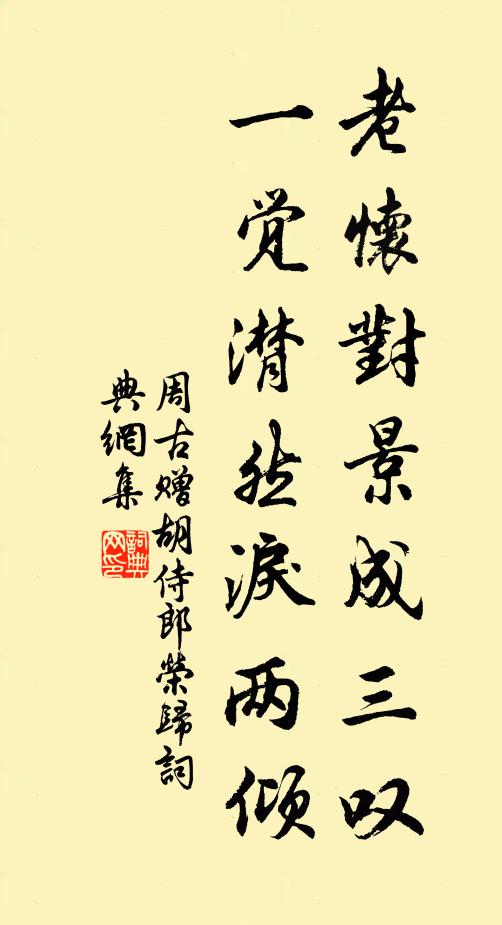 老懷對景成三叹
一觉潸然淚两倾
周古赠胡侍郎榮歸詞
典網集
詞典网印